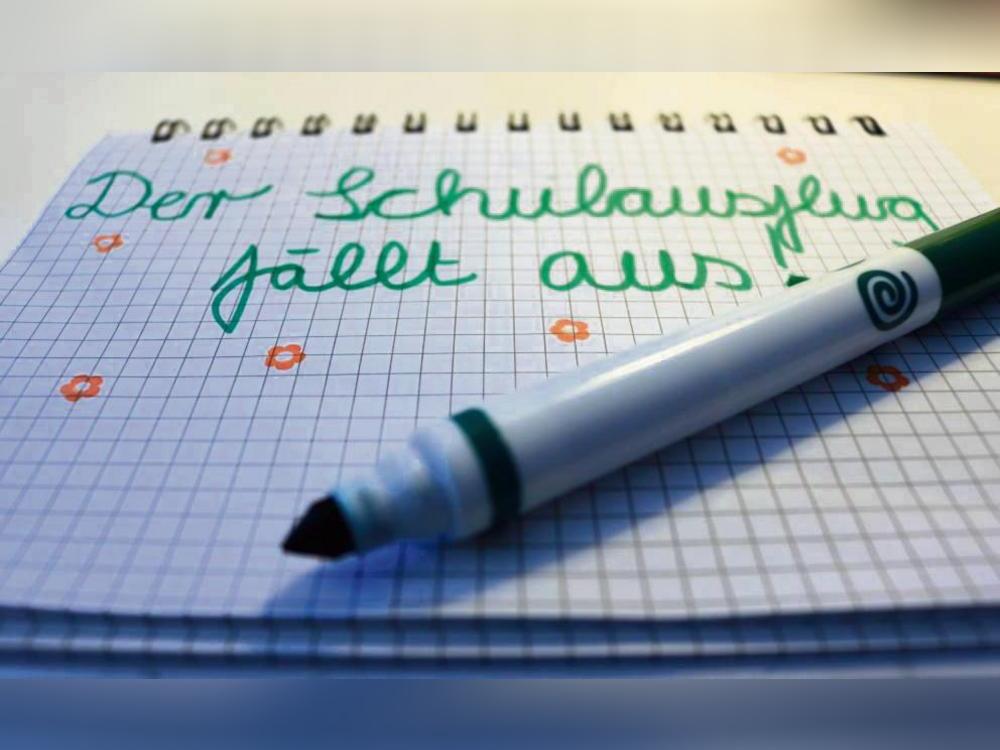 Der Schulausflug
fällt aus!